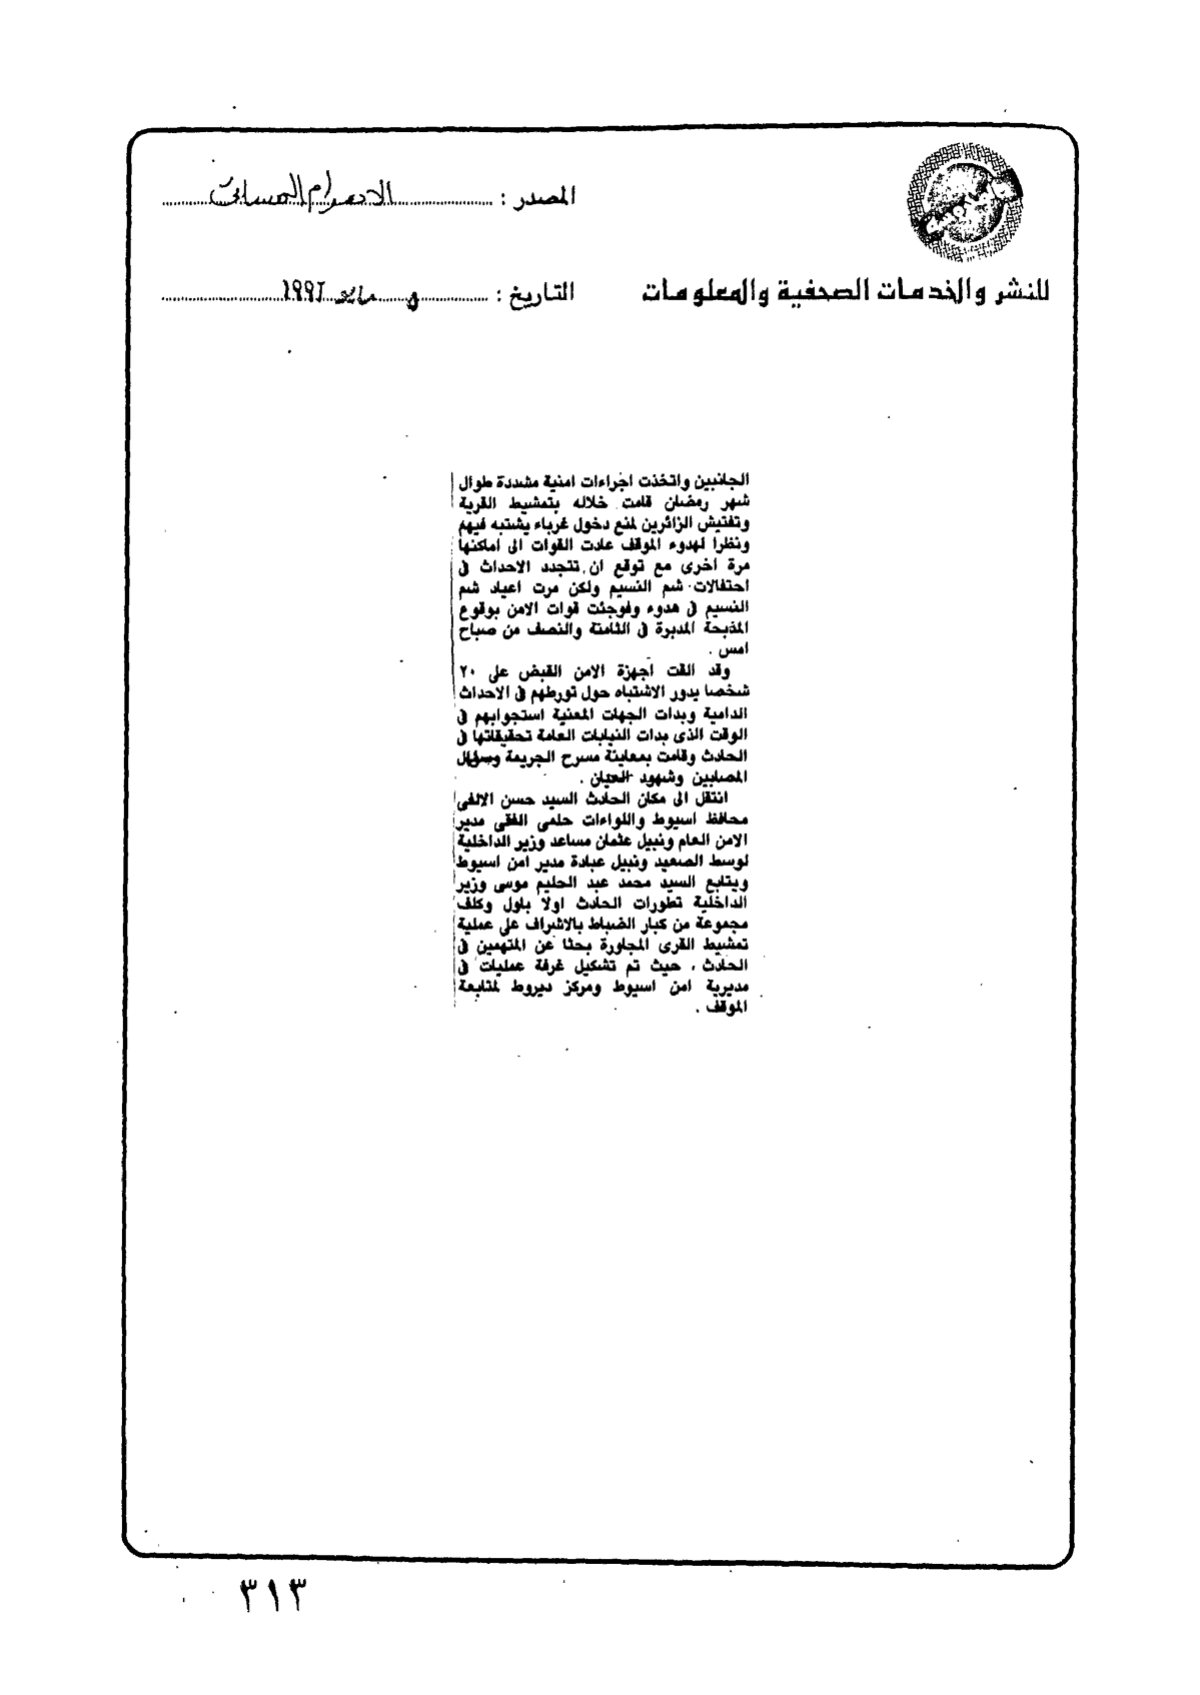 المصدر : الاهرام المسائى
للنشر والخدمات الصحفية والمعلومات
التاريخ : مايو ١٩٩٢
الجانبين واتخذت اجراءات امنية مشددة طوال
شهر رمضان قامت خلاله بتمشيط القرية
وتفتيش الزائرين لمنع دخول غرباء يشتبه فيهم
ونظرا لهدوء الموقف عادت القوات الى اماكنها
مرة اخرى مع توقع ان تتجدد الاحداث فى
احتفالات شم النسيم ولكن مرت اعياد شم
النسيم فى هدوء وفوجئت قوات الامن بوقوع
المذبحة المدبرة فى الثامنة والنصف من صباح
امس .
وقد القت اجهزة الامن القبض على ٢٠
شخصا يدور الاشتباه حول تورطهم فى الاحداث
الدامية وبدات الجهات المعنية استجوابهم فى
الوقت الذى بدات النيابات العامة تحقيقاتها فى
الحادث وقامت بمعاينة مسرح الجريمة وسؤال
المصابين وشهود العيان .
انتقل الى مكان الحادث السيد حسن الالفى
محافظ اسيوط واللواءات حلمى الفقى مدير
الامن العام ونبيل عثمان مساعد وزير الداخلية
لوسط الصعيد ونبيل عبادة مدير امن اسيوط
ويتابع السيد محمد عبد الحليم موسى وزير
الداخلية تطورات الحادث اولا باول وكلف
مجموعة من كبار الضباط بالاشراف على عملية
تمشيط القرى المجاورة بحثا عن المتهمين فى
الحادث ، حيث تم تشكيل غرفة عمليات فى
مديرية امن اسيوط ومركز ديروط لمتابعة
الموقف .
٣١٣